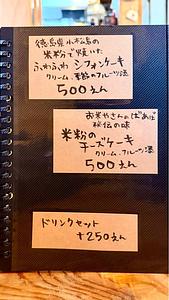 徳島県小松島の
米粉で焼いた
ふわふわ シフォンケーキ
クリーム、季節のフルーツ添
500えん
お米やさんのばぁば
秘伝の味
米粉の
チーズケーキ
クリーム、フルーツ添
500えん
ドリンクセット
+250えん